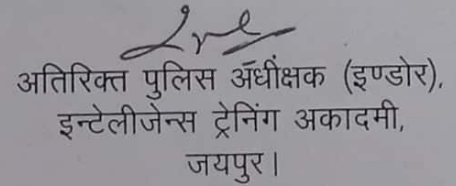 अतिरिक्त पुलिस अॅधीक्षक (इण्डोर),
इन्टेलीजेन्स ट्रेनिंग अकादमी,
जयपुर।